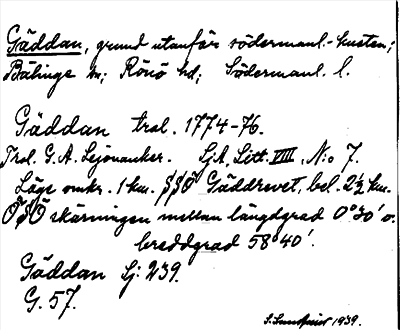 Gäddan, grund utanför södermanl.-kusten;
Bälinge sn; Rönö hd; Södermanl. l.
Gäddan tral. 1774-76.
Trol. G. A. Lejonanker. SjA. Litt. VIII, N:o 7.
Läge omkr. 1 km. SSÖ Gäddrevet, bel. 2½ km.
ÖSÖ skärningen mellan längdgrad 0°30' o.
breddgrad 58°40'.
Gäddan Sj: 239.
G. 57.
1939.